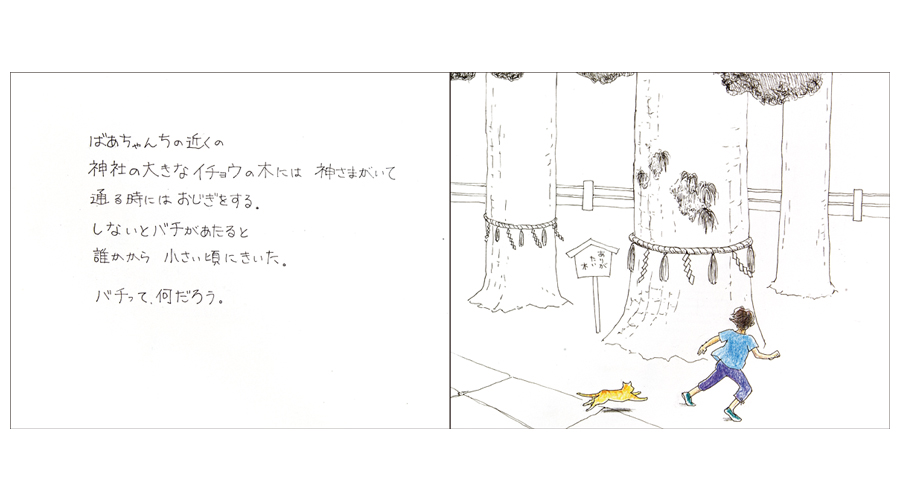 ばあちゃんちの近くの
神社の大きなイチョウの木には 神さまがいて
通る時にはおじぎをする。
しないとバチがあたると
誰かから 小さい頃にきいた。
バチって、何だろう。
ありが
たい
木